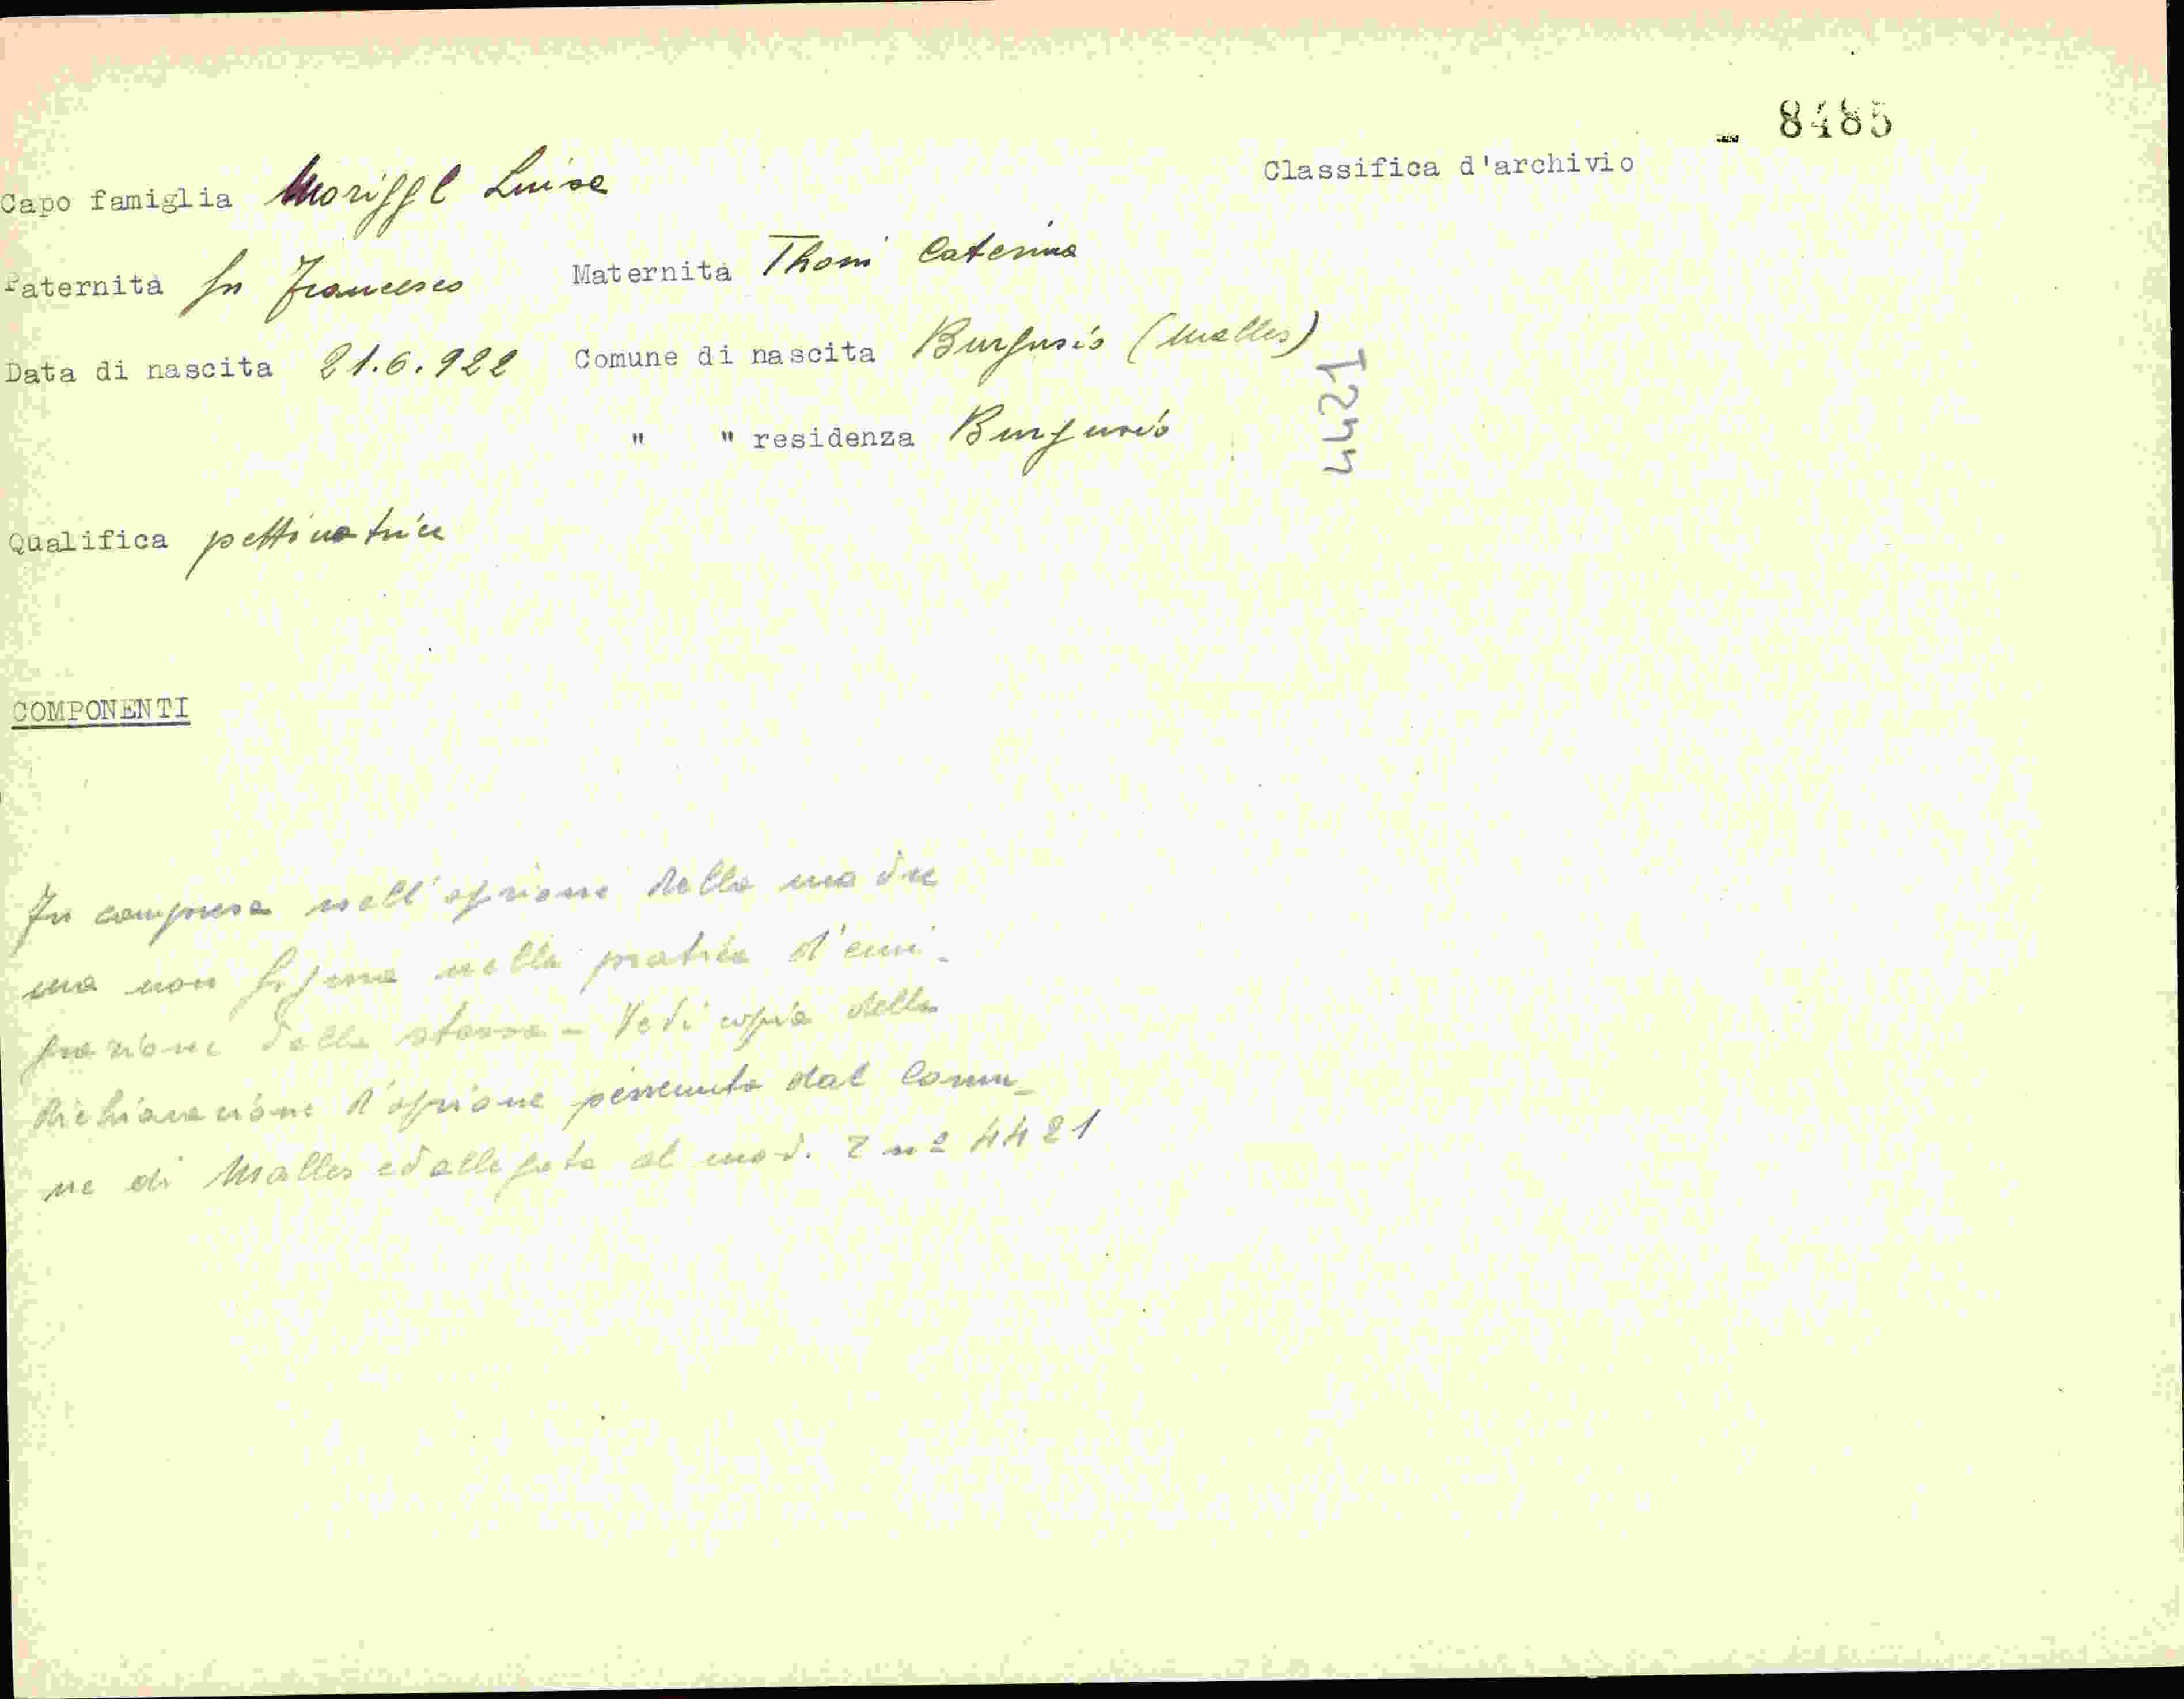 - 8485
Classifica d'archivio
Capo famiglia Moriggl Luise
Paternità fu Francesco Maternità Thoni Caterina
Data di nascita 21.6.922 Comune di nascita Burgusio (Malles)
4421
" " residenza Burgusio
Qualifica pettinatrice
COMPONENTI
Fu compresa nell'opzione della madre
ma non figura nella pratica d'emi-
grazione della stessa - Vedi copia della
dichiarazione d'opzione pervenuta dal Comu-
ne di Malles ed allegata al mod. 2 nº 4421